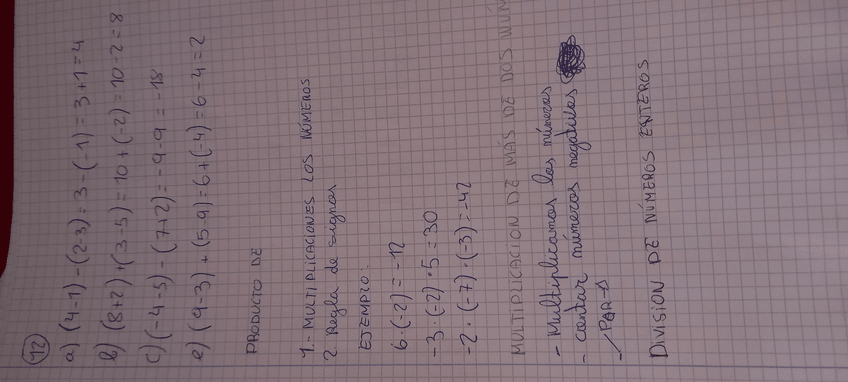 12
a) (4-1) - (2-3) = 3 - (-1) = 3 + 1 = 4
b) (8+2) + (3-5) = 10 + (-2) = 10 - 2 = 8
c) (-4-5) - (7+2) = -9 - 9 = -18
e) (9-3) + (5-9) = 6 + (-4) = 6 - 4 = 2
PRODUCTO DE
1.- MULTIPLICACIONES LOS NÚMEROS
2 Regla de signos
EJEMPLO:
6·(-2) = -12
-3·(-2)·5 = 30
-2·(-7)·(-3) = -42
MULTIPLICACION DE MÁS DE DOS NÚM
- Multiplicamos los números
- contar números negativos
- PAR
DIVISION DE NÚMEROS ENTEROS